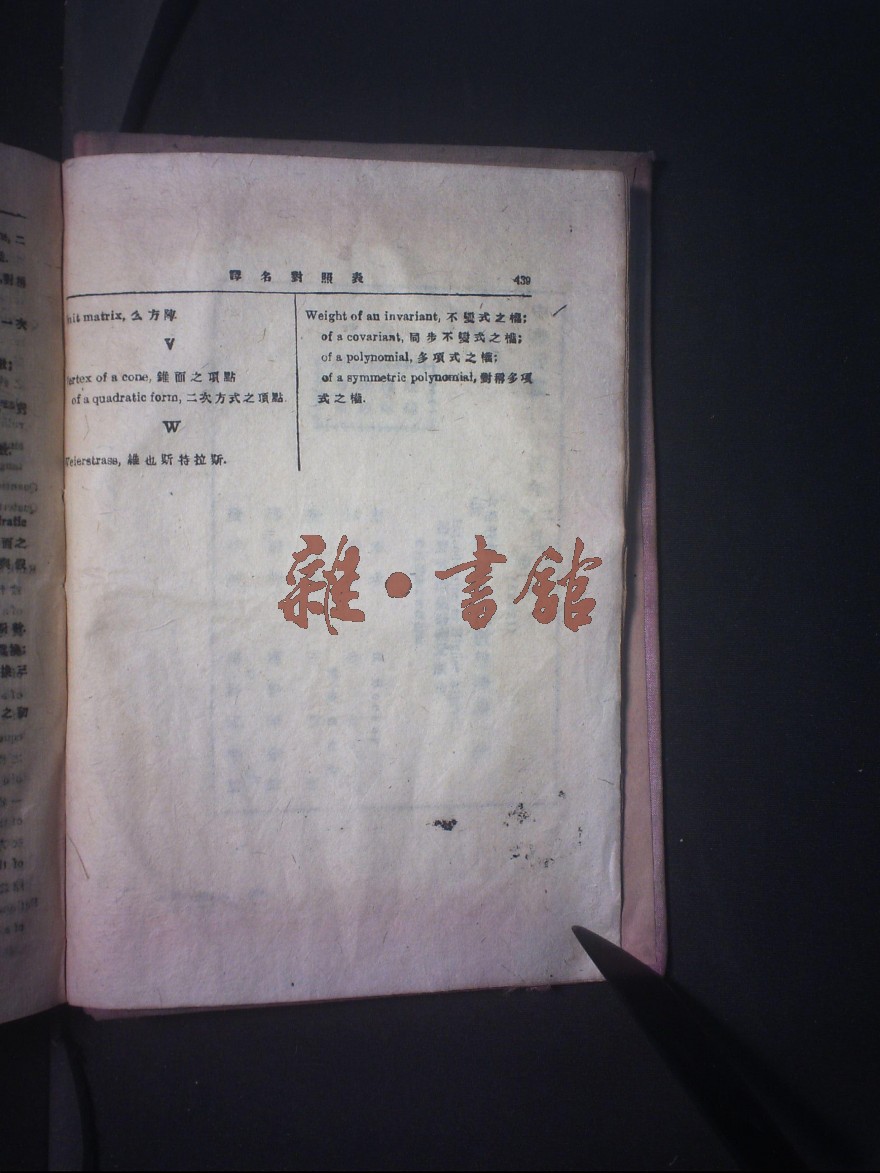 譯名對照表 439
nit matrix, 么方陣
V
rtex of a cone, 錐面之頂點
of a quadratic form, 二次方式之頂點.
W
eierstrass, 維也斯特拉斯.
Weight of an invariant, 不變式之權;
of a covariant, 同步不變式之權;
of a polynomial, 多項式之權;
of a symmetric polynomial, 對稱多項
式之權.
雜·書館